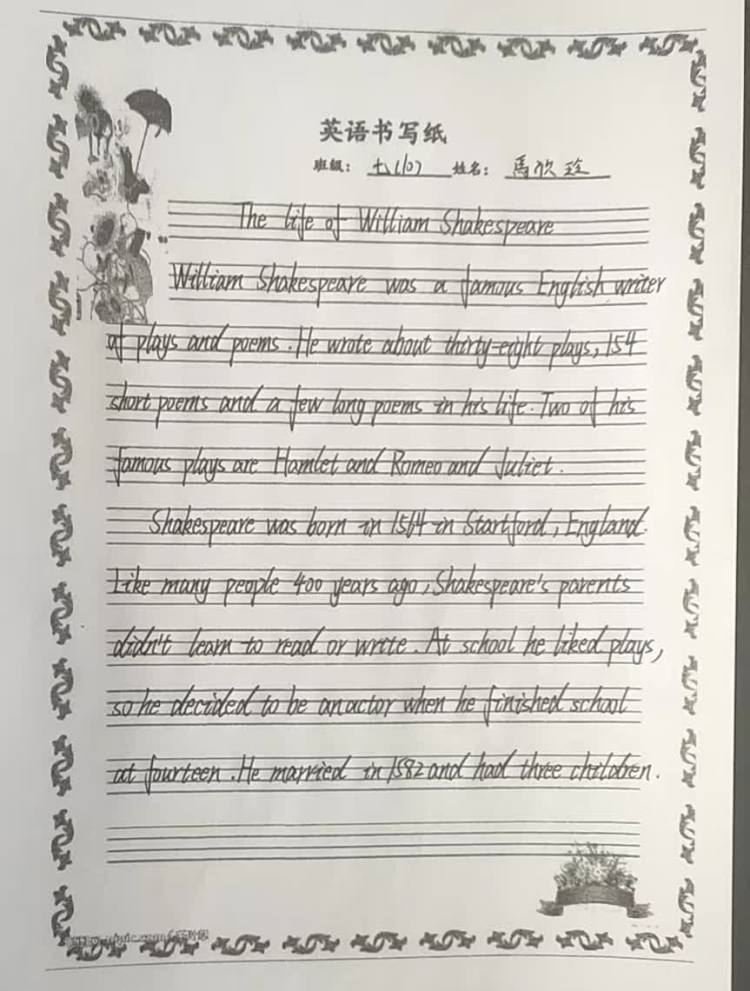 英语书写纸
班级: 七(10) 姓名: 馬欣
The life of William Shakespeare
William Shakespeare was a famous English writer
of plays and poems. He wrote about thirty-eight plays, 154
short poems and a few long poems in his life. Two of his
famous plays are Hamlet and Romeo and Juliet.
Shakespeare was born in 1564 in Startford, England.
Like many people 400 years ago, Shakespeare's parents
didn't learn to read or write. At school he liked plays,
so he decided to be an actor when he finished school
at fourteen. He married in 1582 and had three children.